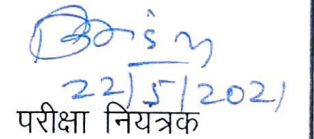 22/5/2021
परीक्षा नियत्रक